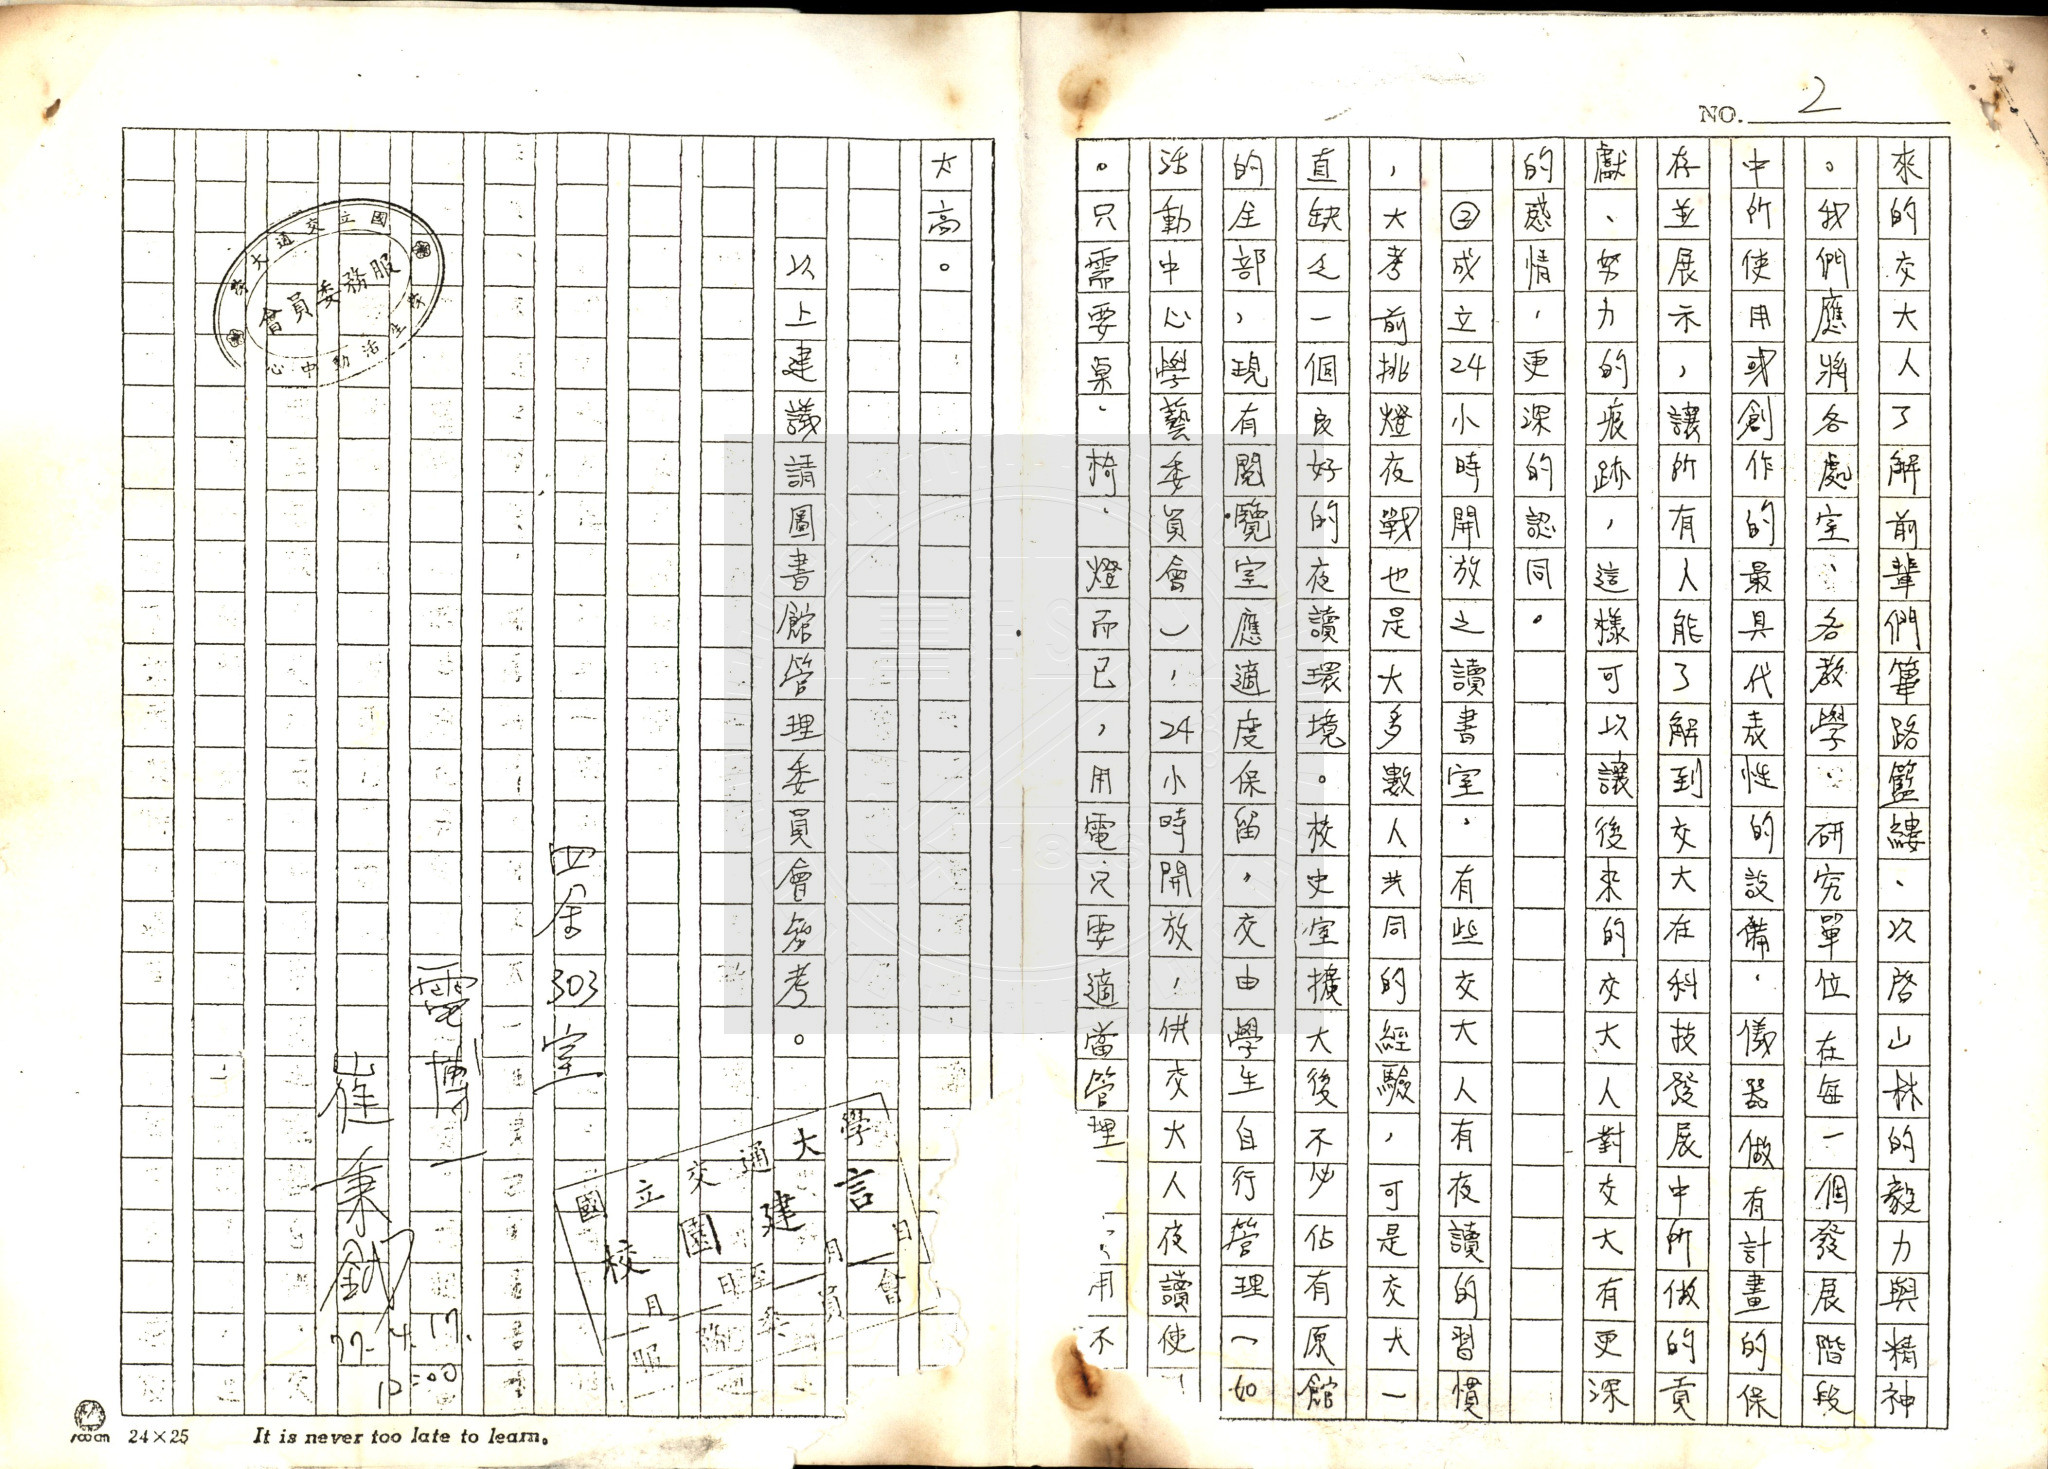 NO. 2
來的交大人了解前輩們篳路籃縷、以啓山林的毅力與精神
。我們應將各處室、各教學、研究單位在每一個發展階段
中所使用或創作的最具代表性的設備、儀器做有計畫的保
存並展示，讓所有人能了解到交大在科技發展中所做的貢
獻、努力的痕跡，這樣可以讓後來的交大人對交大有更深
的感情，更深的認同。
②成立24小時開放之讀書室，有些交大人有夜讀的習慣
，大考前挑燈夜戰也是大多數人共同的經驗，可是交大一
直缺乏一個良好的夜讀環境。校史室擴大後不必佔有原館
的全部，現有閱覽室應適度保留，交由學生自行管理（如
活動中心學藝委員會），24小時開放，供交大人夜讀使
。只需要桌、椅、燈而已，用電只要適當管理 用不
太高。
以上建議請圖書館管理委員會參考。
四舍303室
電博一
崔秉鉞
77.4.17.
12:00
國立交通大學
學生活動中心
服務委員會
國立交通大學
校園建言
月 日至 月 日
服務委員會
24×25
It is never too late to learn.